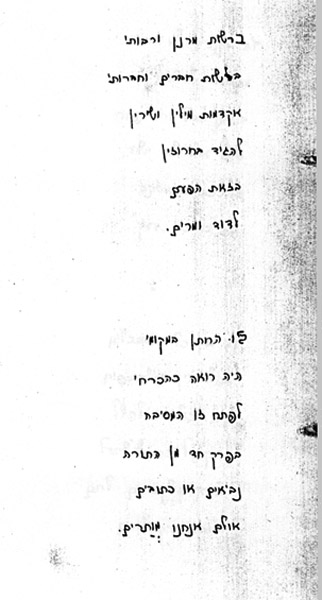 ברשות מרנן ורבותי
בלשות חברים וחברותי
אקדמות מילין ושירין
להגיד בחרוזין
בזאת הפעם
לדוד ומרים.
לו החתן במקומי
היה רואה כהכרחי
לפתח זו המסיבה
בפרק חד מן התורה
נביאים או כתובים
אולם אנחנו מותרים.